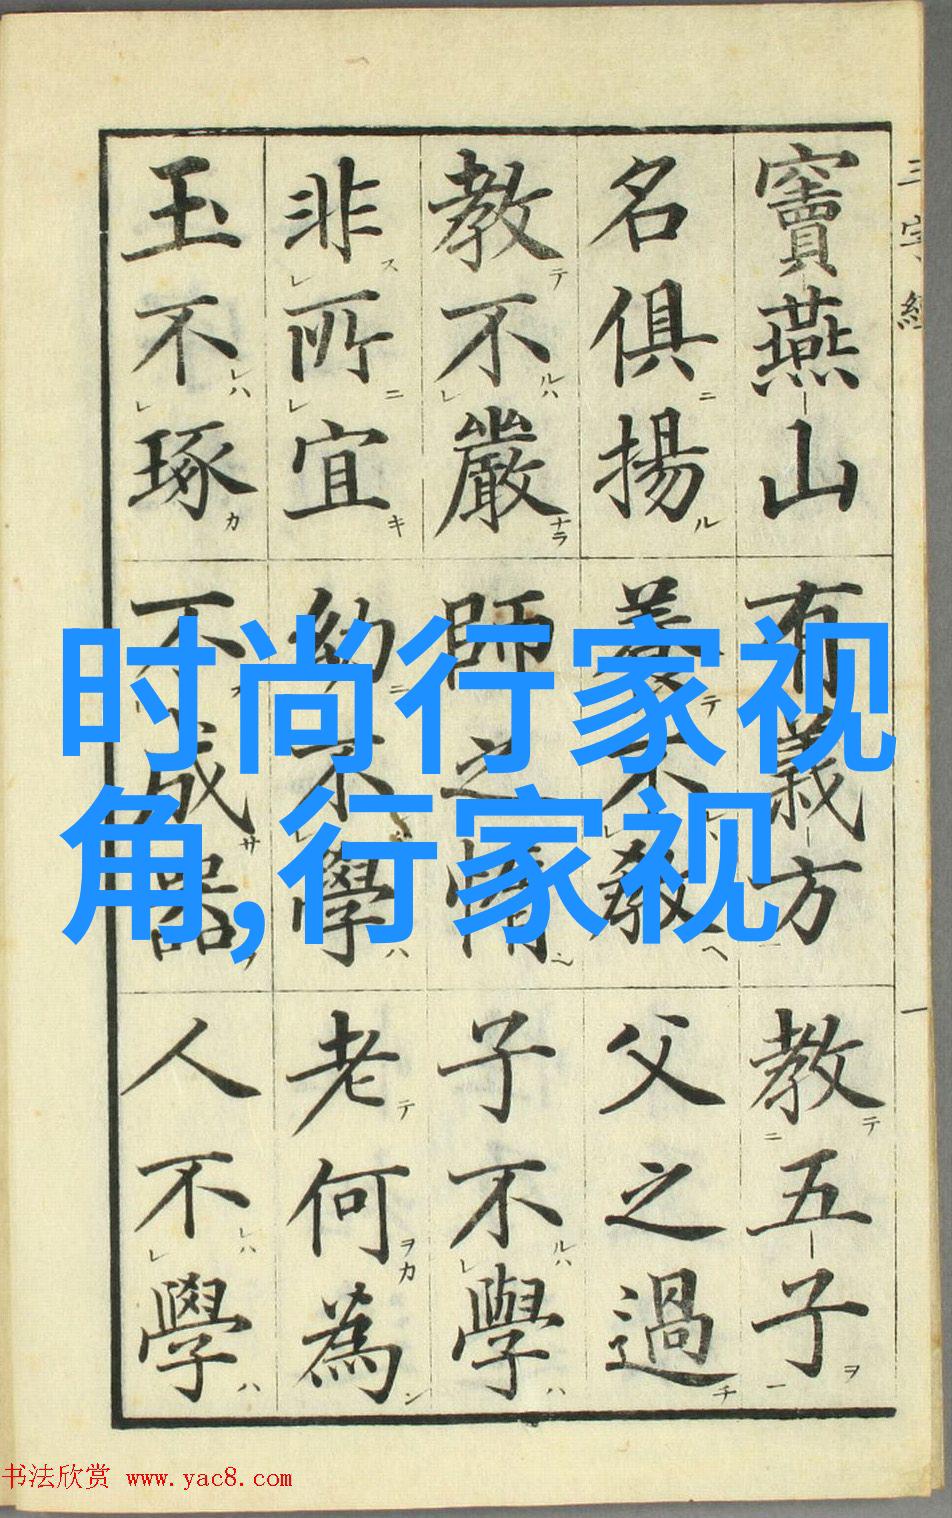 三字經
竇燕山有義方教五子
名俱揚養不教父之過
教不嚴師之惰子不學
非所宜幼不學老何為
玉不琢不成器人不學
一
时尚行家视
角,行家视
书法欣赏 www.yac8.com